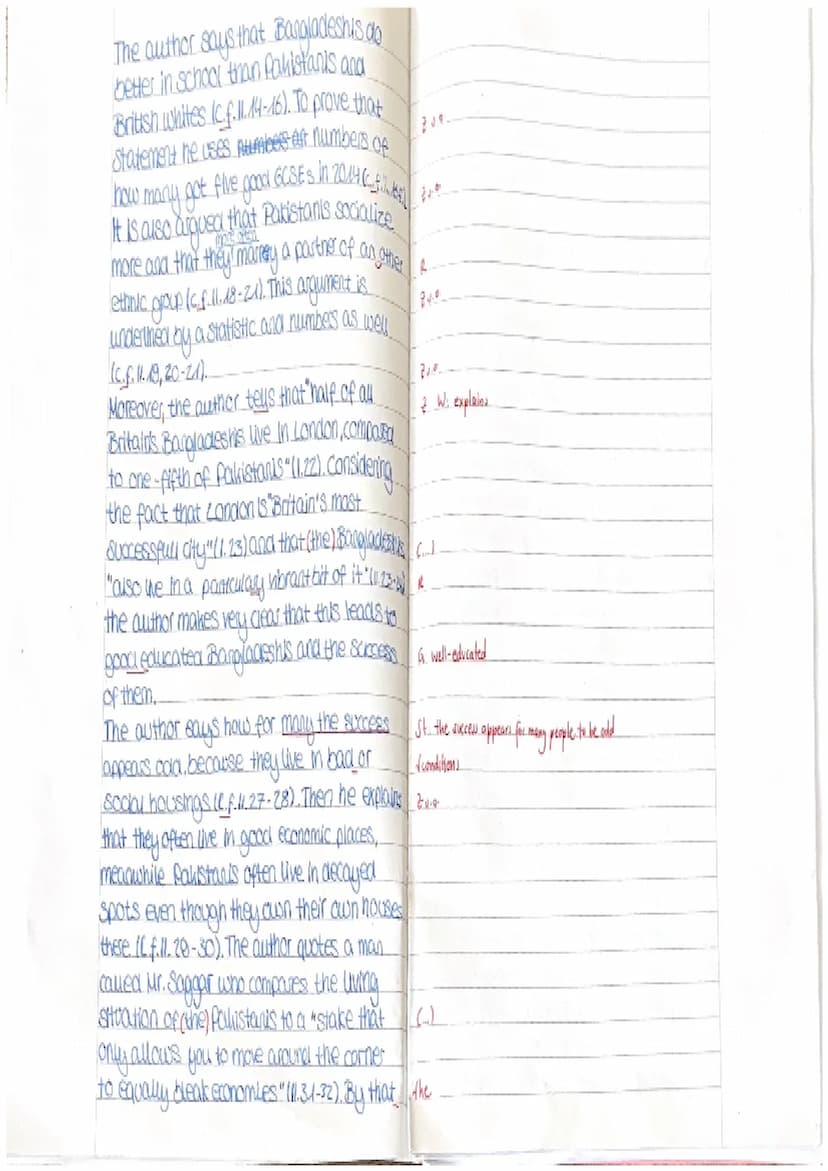 The author says that Bangladeshis do
better in school than Pakistanis and
British whites (c.f. ll. 14-16). To prove that
statement he uses numbers of
how many got five good GCSEs in 2014 (c.f. l.
It is also argued that Pakistanis socialize
more often
more and that they marry a partner of an other
ethnic group (c.f. ll. 18-21). This argument is
underlined by a statistic and numbers as well
(c.f. ll. 19, 20-21).
Moreover, the author tells that "half of all
Britain's Bangladeshis live in London, compared
to one-fifth of Pakistanis" (l. 22). Considering
the fact that London is "Britain's most
successfull city" (l. 23) and that (the) Bangladeshis
"also live in a particulary vibrant bit of it" (ll. 23-
the author makes very clear that this leads to
good educated Bangladeshis and the success
of them.
The author says how for many the success
appears odd, because they live in bad or
social housings (c.f. ll. 27-28). Then he explains
that they often live in good economic places,
meanwhile Pakistanis often live in decayed
spots even though they own their own houses
there (c.f. ll. 28-30). The author quotes a man
called Mr. Saggar who compares the living
situation of (the) Pakistanis to a "stake that
only allows you to move around the corner
to equally bleak economies" (ll. 31-32). By that
R
W: explains
(...)
R
G well-educated
St. the success appears for many people to be odd
√conditions
(...)
the